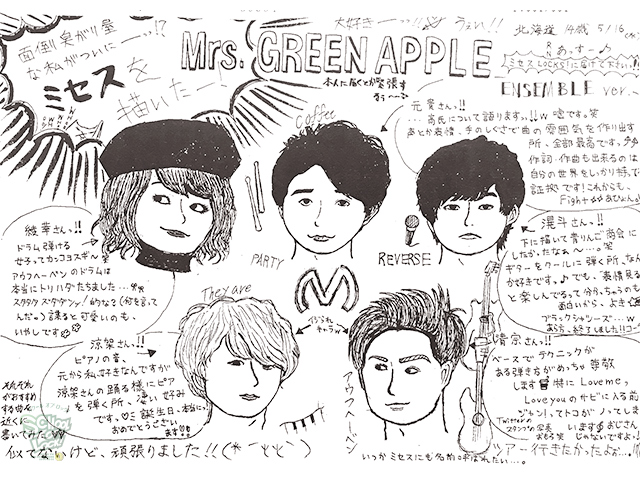 面倒臭がり屋
な私がついにーッ!?
ミセスを
描いたー!
大好きーッ!!
うぇい!!
Mrs. GREEN APPLE
本人に届くとか緊張す
北海道 14歳 5/16
あっすー♪
ミセスLOCKS!に届けておくれ
ENSEMBLE ver.
元貴さんっ!!
… 高氏について語ります。!!w 嘘です。笑
声とか表情、手のしぐさで曲の雰囲気を作り出す
所、全部最高です。
作詞・作曲も出来るのは
自分の世界をしっかり持って
証拠です!これからも、
Fight
Coffee
綾華さんっ!!
ドラム弾ける
女子ってカッコヨスギ〜笑
アウフヘーベンのドラムは
本当にトリハダたちました…
スタタタ スタタタン!的なる(何を言って
んだw)語ると可愛いのも、
いやしです
PARTY
REVERSE
滉斗さんっ!!
下に描いて青りんご商会に
したかったなぁ〜…笑
ギターをクールに弾く所、なん
か好きです。♪でも、表情見る
と楽しんでるって分かっちゃうのも
面白いから、よき
ブラックシャンーズ…w
あぁっ、終了しましたリコー
They are
M
イジられ
キャラw
涼架さんっ!!
ピアノの音、
元から私好きなんですが
涼架さんの踊る様にピア
を弾く所、凄い好み
です。誕生日、本当に
おめでとうござい
ます
それぞれ
がおすすめ
する曲を
近くに
書いてみたw
アウフヘーベン
髙京さんっ!!
ベースでテクニックが
ある弾き方がめっちゃ尊敬
します 特に Love me,
Love you のサビに入る前
ジャン!ってトコがノってしま
います おじさん
じゃないですよっ!
Twitterの
スタンプの写真
おもろ笑
似てないけど、頑張りました!!
いつか ミセスにも名前呼ばれたい…。
ツアー行きたかったよぉ…